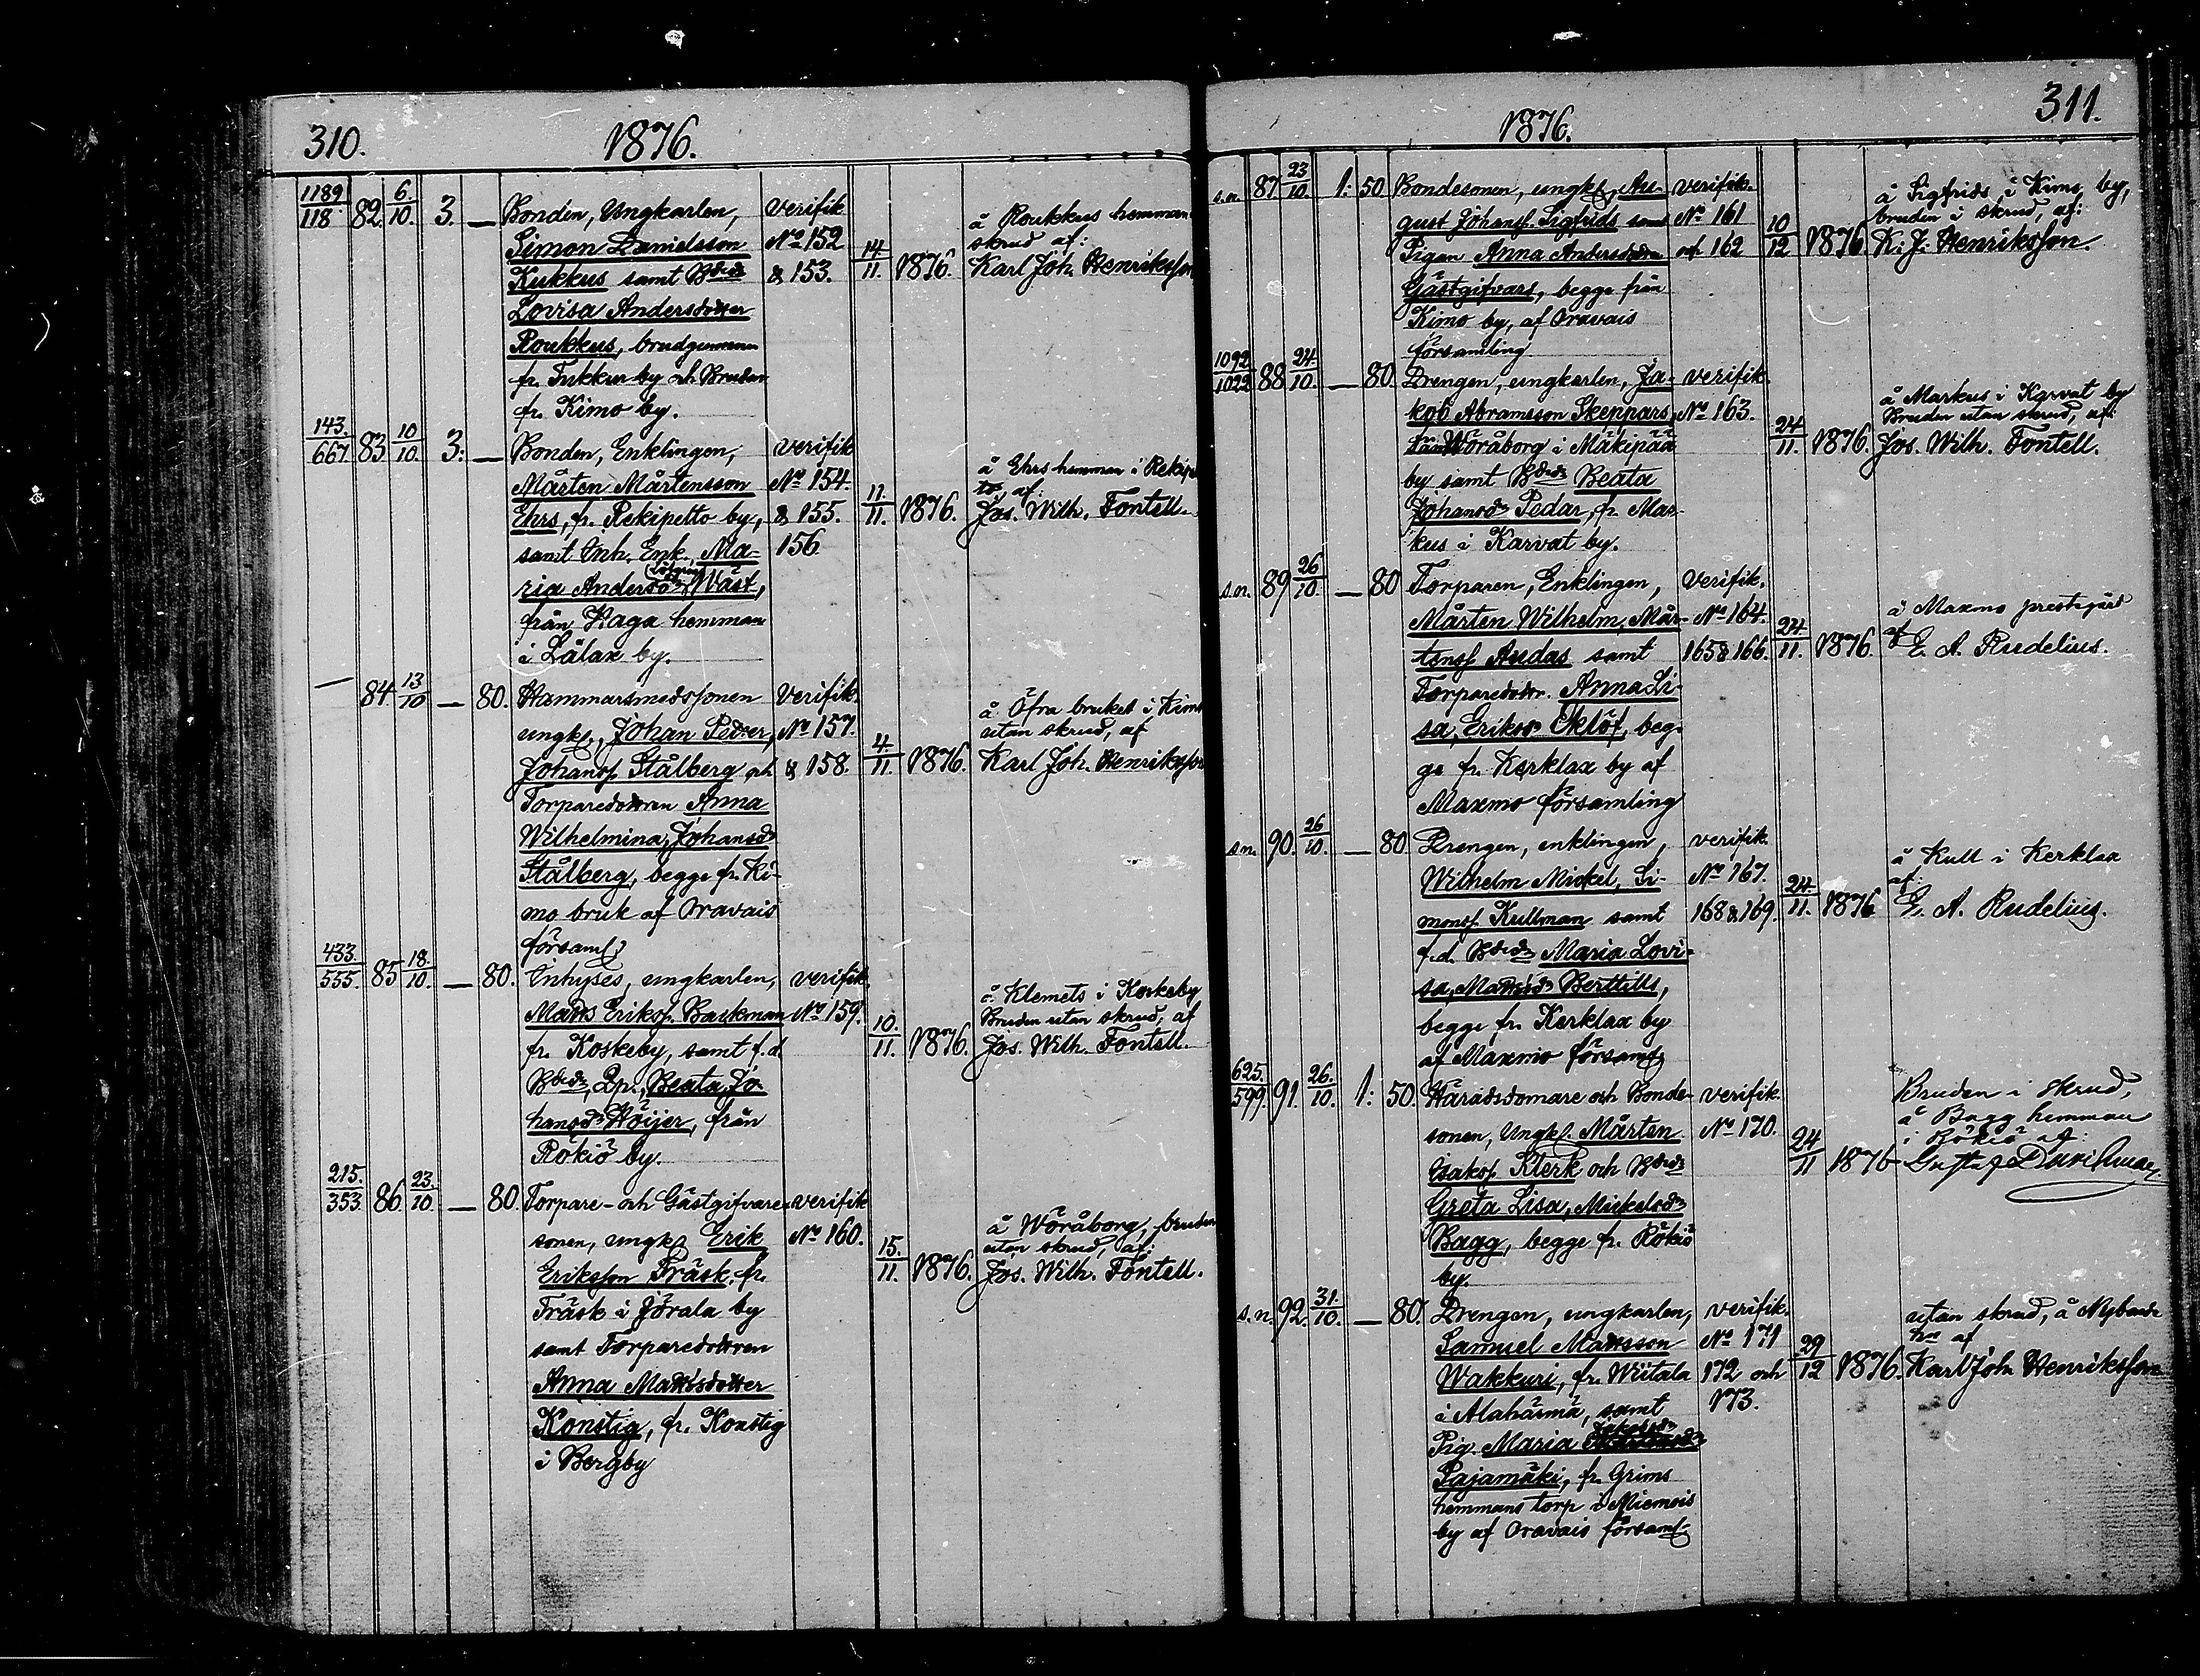 310.
1876.
1189/118 82. 6/10. 3. — Bonden, Ungkarlen, verifik
Simon Danielsson No 152
Kukkus samt Bdrdr & 153. 14/11. 1876. å Roukkus hemman skrud af: Karl Joh. Henriksson
Lovisa Andersdotter
Roukkus, brudgummen
fr. Tukkur by och Bruden
fr. Kimo by.
143./667 83 10/10. 3: — Bonden, Enklingen, verifik
Mårten Mårtensson No 154.
Ehrs, fr. Rekipelto by, & 155. 11./11. 1876. å Ehrs hemman i Rekipel- to, af: Jos. Wilh. Fontell.
samt Inh. Enk. Ma- 156
ria Andersdr Wäst,
från Kaga hemman
i Lålax by.
— 84 13/10 — 80. Hammarsmedssonen Verifik.
ungk., Johan Petter, No 157.
Johanss. Stålberg och & 158. 4./11. 1876. å Öfra bruket i Kimo utan skrud, af Karl Joh. Henriksson
Torparedottren Anna
Wilhelmina, Johansdr
Stålberg, begge fr. Ki-
mo bruk af Oravais
församl.
433./555. 85 18./10. — 80. Inhyses, ungkarlen, verifik.
Matts Eriks. Backman No 159. 10./11. 1876. å Klemets i Koskeby Bruden utan skrud, af Jos. Wilh. Fontell.
fr. Koskeby, samt f.d.
Bdrdr, Beata Jo-
hansdr Höijer, från
Rökiö by.
215./353. 86. 23./10. — 80. Torpare- och Gästgifvare- verifik
sonen, ungk. Erik No 160.
Eriksson Träsk, fr. 15./11. 1876. å Wöråborg, bruden utan skrud, af: Jos. Wilh. Fontell.
Träsk i Jörala by
samt Torparedottren
Anna Mattsdotter
Konstig, fr. Konstig
i Bergby
1876.
311.
s.n. 87 23/10. 1: 50 Bondesonen, ungk., Au- verifik.
gust Johanss. Sigfrids samt No 161
Pigan Anna Andersdotter och 162 10/12 1876 å Sigfrids i Kimo by, bruden i skrud, af: K. J. Henriksson
Gästgifvars, begge från
Kimo by, af Oravais
församling
1092/1022 88 24./10. — 80. Drengen, ungkarlen, Ja- verifik.
kob Abramsson Skeppars, No 163.
fr. Wöråborg i Mäkipää 24/11. 1876. å Markus i Karvat by Bruden utan skrud, af: Jos. Wilh. Fontell.
by samt Bdrdr Beata
Johansdr Pedar, fr. Mar-
kus i Karvat by.
s.n. 89 26/10. — 80 Torparen, Enklingen, Verifik.
Mårten Wilhelm, Mår- No 164.
tenss. Audas samt 165 & 166. 24./11. 1876. å Maxmo prestgård af E. A. Rudelius.
Torparedottr. Anna Li-
sa, Eriksdr Eklöf, beg-
ge fr. Kerklax by af
Maxmo församling
s.n. 90. 26/10. — 80 Drengen, enklingen, verifik.
Wilhelm Mickel, Si- No 167.
monss. Kullman samt 168 & 169. 24./11. 1876 å Kull i Kerklax af: E. A. Rudelius.
f.d. Bdrdr Maria Lovi-
sa, Mattsdr Berttills,
begge fr. Kerklax by
af Maxmo församl.
625./599. 91. 26./10. 1: 50. Häradsdomare och Bonde- verifik.
sonen, Ungk. Mårten No 170.
Isaks. Klerk och Bdrdr 24/11 1876 Bruden i Skrud, å Bagg hemman i Rökiö af:
Greta Lisa, Mickelsdr
Bagg, begge fr. Rökiö
by.
s.n. 92. 31./10. — 80. Drengen, ungkarlen, verifik.
Samuel Mattsson No 171
Wakkuri, fr. Wiitala 172 och 29/12 1876. utan skrud, å Nybonde hn af Karl Joh. Henriksson
i Alahärmä, samt 173.
Pig. Maria Jakobsdr
Pajamäki, fr. Grims
hemmans torp i Miemois
by af Oravais församl.